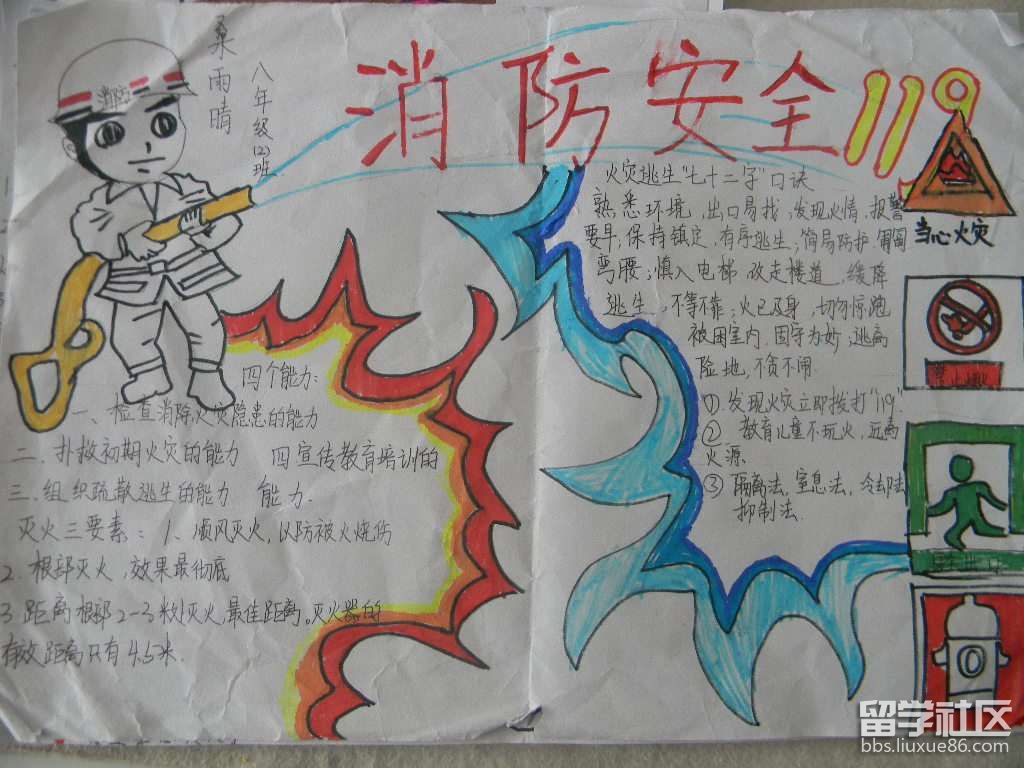 消防安全119
桑雨晴
八年级(2)班
消防
火灾逃生"七十二字"口诀
熟悉环境,出口易找;发现火情,报警
要早;保持镇定,有序逃生;简易防护,匍匐
弯腰;慎入电梯,改走楼道,缓降
逃生,不等不靠;火已及身,切勿惊跑
被困室内,固守为妙;逃离
险地,不贪不闹.
①.发现火灾立即拨打"119".
② 教育儿童不玩火,远离
火源.
③ 隔离法,窒息法,冷却法
抑制法.
当心火灾
四个能力:
一、检查消除火灾隐患的能力
二、扑救初期火灾的能力 四宣传教育培训的
三.组织疏散逃生的能力 能力.
灭火三要素:1、顺风灭火,以防被火烧伤
2. 根部灭火,效果最彻底
3.距离根部2-3米灭火,最佳距离。灭火器的
有效距离只有4.5米.
留学社区
bbs.liuxue86.com